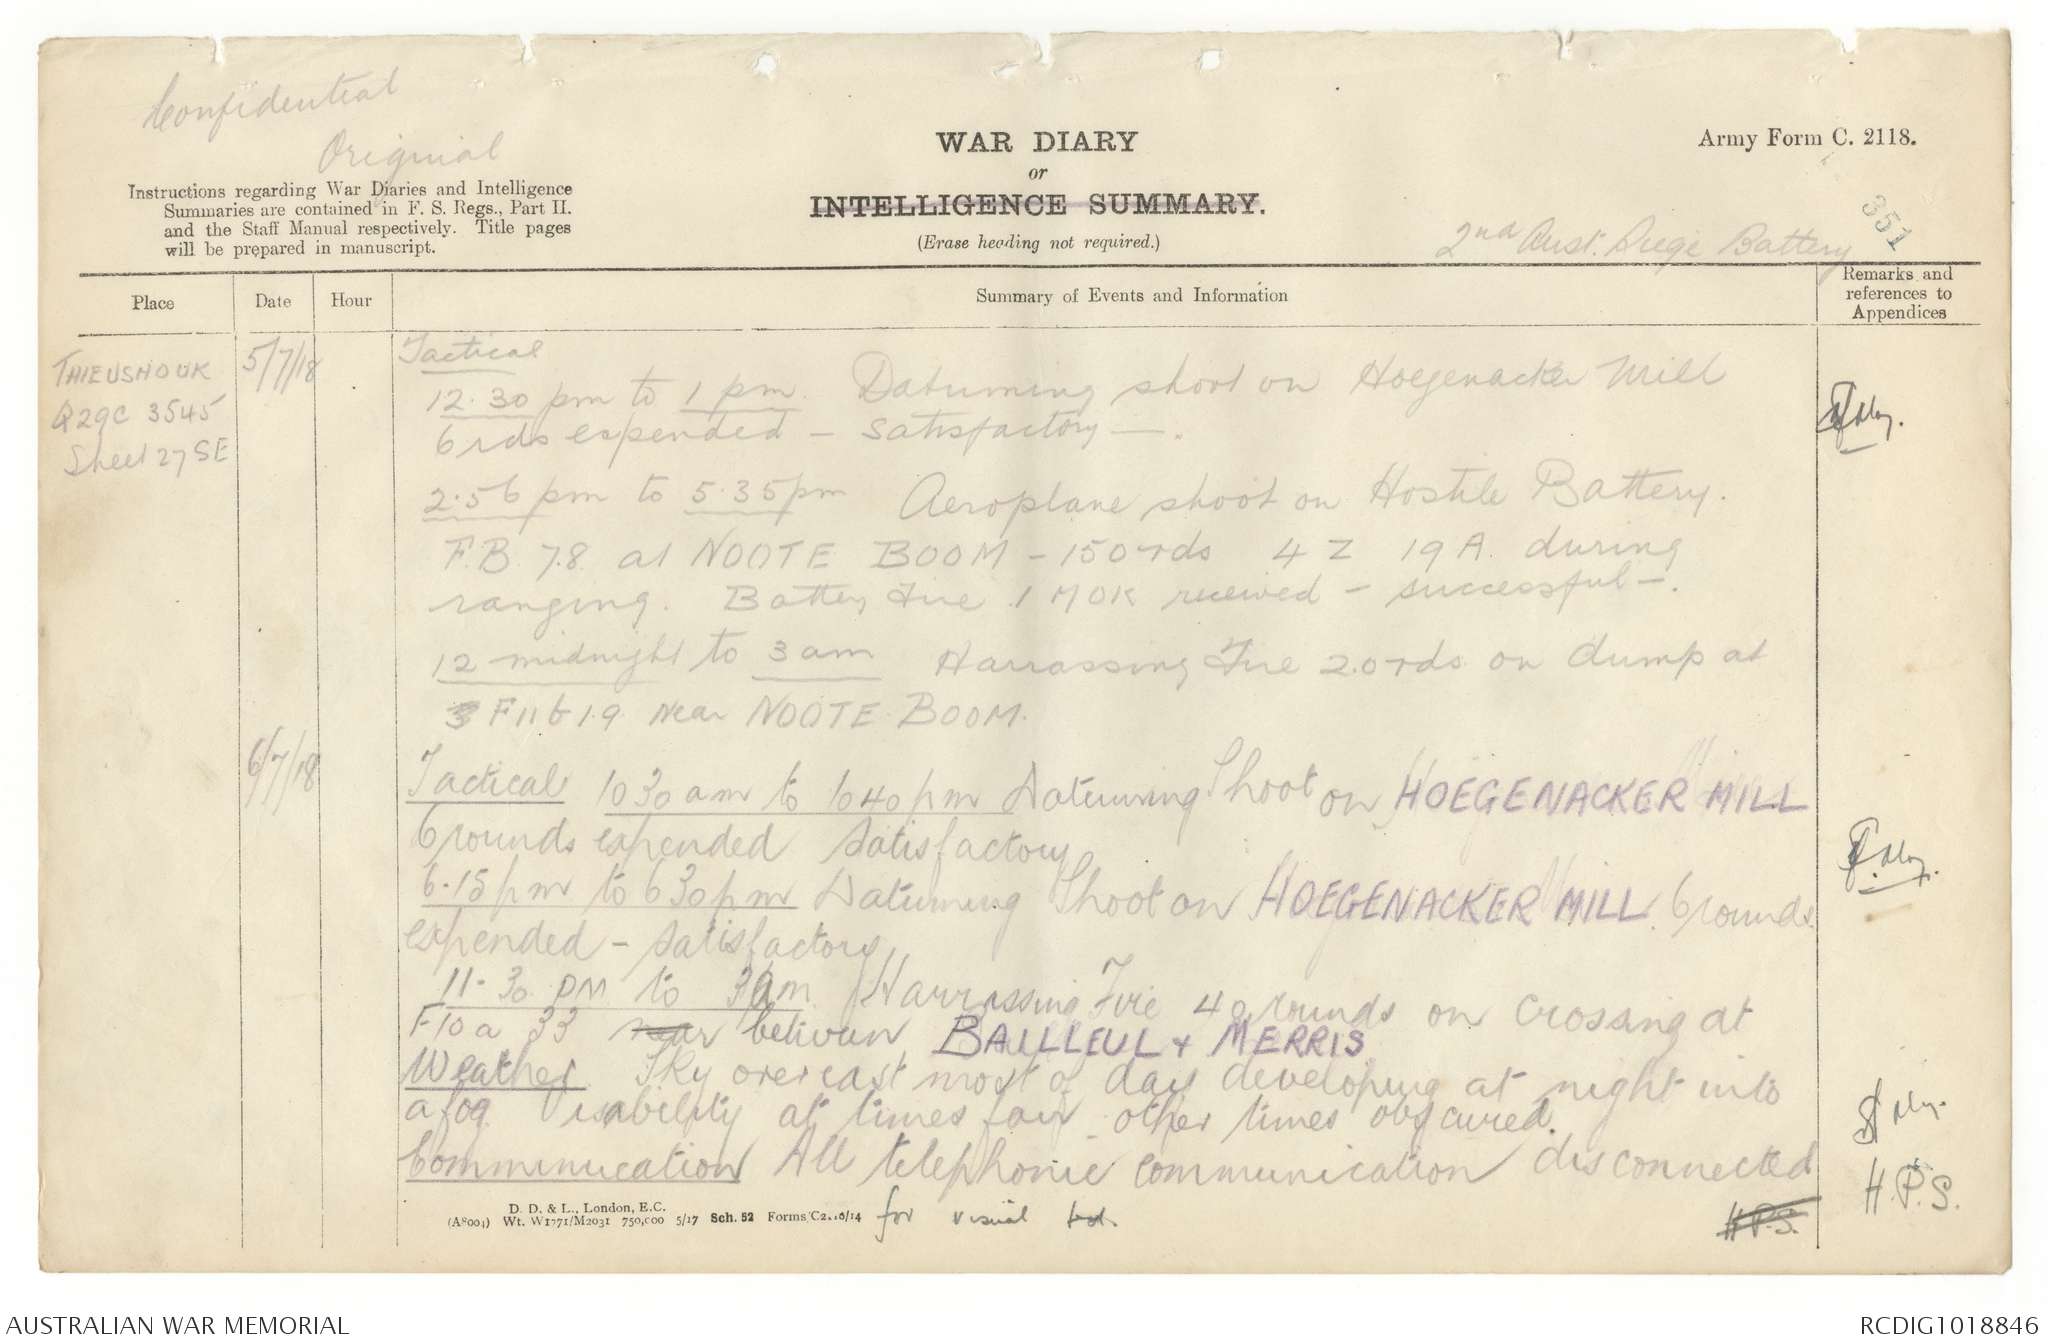 Confidential
Original
Instructions regarding War Diaries and Intelligence
Summaries are contained in F. S. Regs., Part II.
and the Staff Manual respectively. Title pages
will be prepared in manuscript.
WAR DIARY
or
INTELLIGENCE SUMMARY.
(Erase heading not required.)
Army Form C. 2118.
351
2nd Aust. Siege Battery
Place
Date
Hour
Summary of Events and Information
Remarks and
references to
Appendices
THIEUSHOUK
Q29C 3545
Sheet 27 SE
5/7/18
Tactical
12.30 pm to 1 pm. Datuming shoot on Hoegenacker Mill
6 rds expended - satisfactory -.
2.56 pm to 5.35 pm Aeroplane shoot on Hostile Battery.
F.B. 78 at NOOTE BOOM - 150 rds 4 Z 19 A. during
ranging. Battery Fire 1 MOK received - successful -.
12 midnight to 3 am Harrassing Fire 20 rds on dump at
F11b19 near NOOTE BOOM.
6/7/18
Tactical 1030 am to 1040 pm Datuming Shoot on HOEGENACKER MILL
6 rounds expended satisfactory
6.15 pm to 630 pm Datuming Shoot on HOEGENACKER MILL. 6 rounds
expended - satisfactory
11-30 pm to 3am Harrassing Fire 40 rounds on crossing at
F10a 33 near between BAILLEUL & MERRIS
Weather Sky overcast most of day developing at night into
a fog Visability at times fair - other times obscured.
Communication All telephonic communication disconnected
for visual test.
H.P.S.
H.P.S.
D. D. & L., London, E.C.
(A8004) Wt. W1771/M2031 750,000 5/17 Sch. 52 Forms/C2118/14
AUSTRALIAN WAR MEMORIAL
RCDIG1018846